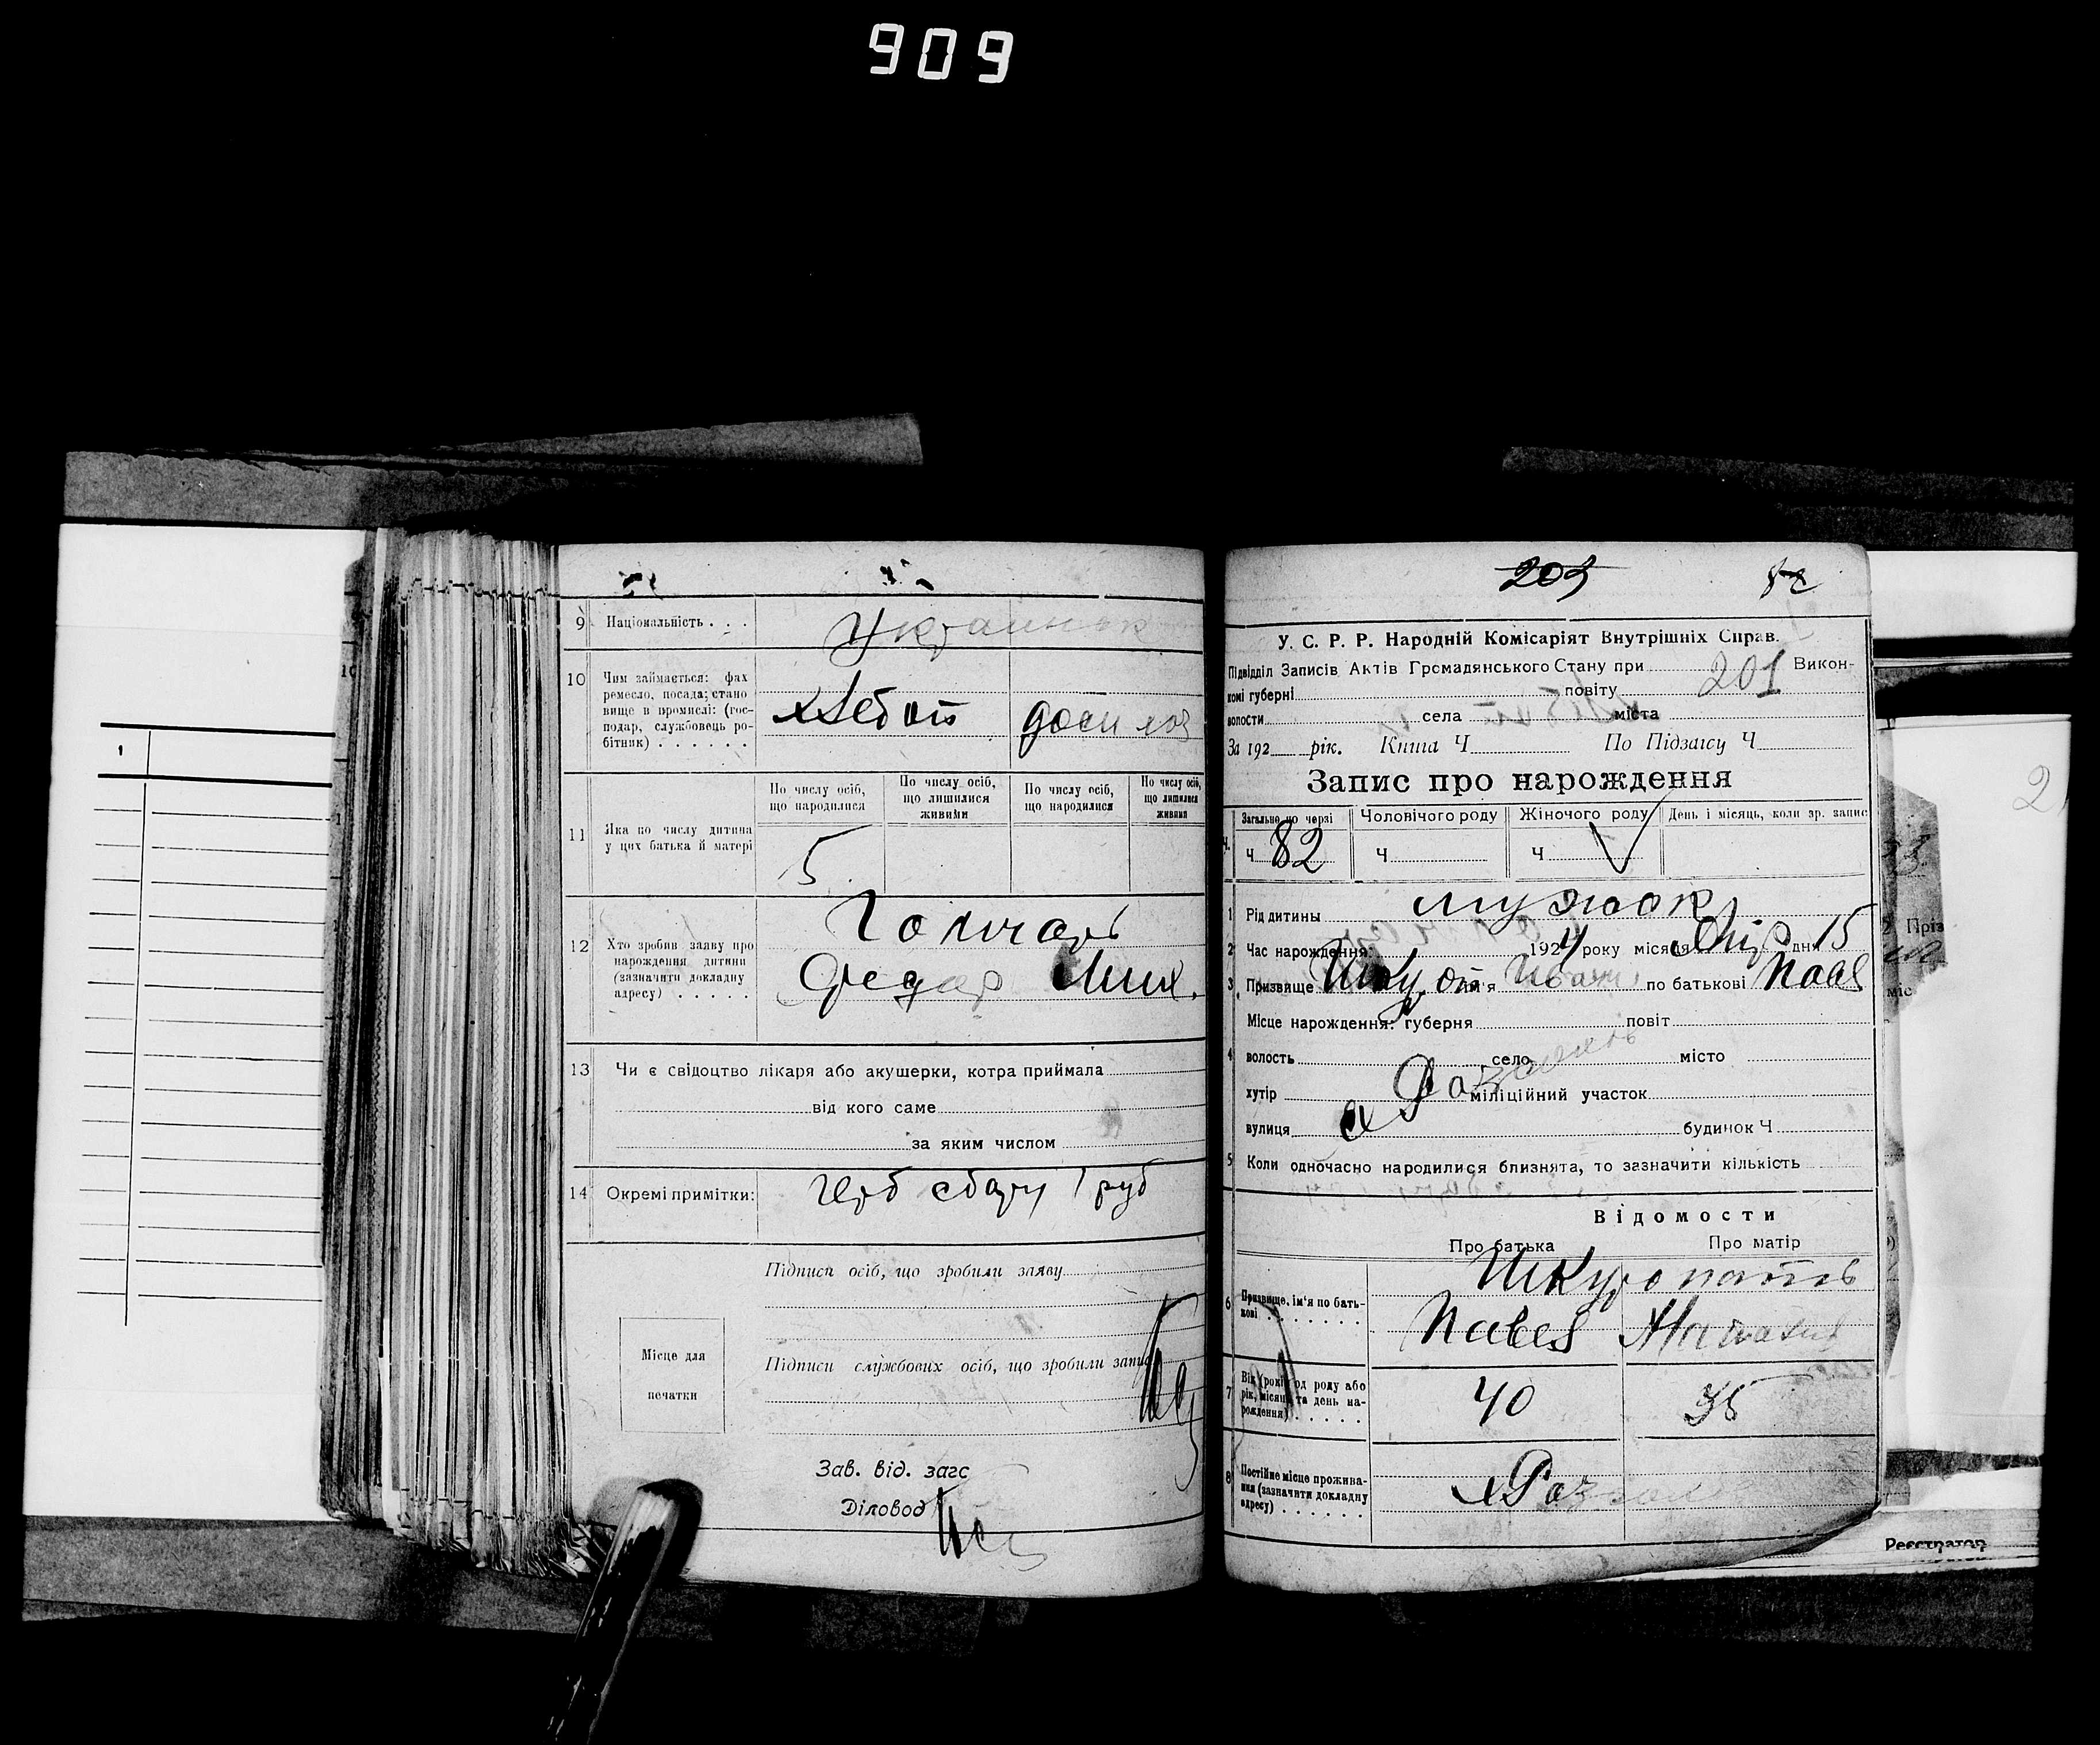 909
9 Національність . . .
Украинск
10 Чим займається: фах
ремесло, посада; стано
вище в промислі: (гос-
подар, службовець ро-
бітник) . . . . . .
хлебоп
11 Яка по числу дитина
у цих батька й матері
По числу осіб,
що народилися
По числу осіб,
що лишилися
живими
По числу осіб,
що народилися
По числу осіб,
що лишилися
живими
5
12 Хто зробив заяву про
нарождення дитини
(зазначити докладну
адресу) . . . . .
Гончарь
Федор Мих.
13 Чи є свідоцтво лікаря або акушерки, котра приймала
від кого саме
за яким числом
14 Окремі примітки:
герб сбору 1 руб
Підписи осіб, що зробили заяву
Місце для
печатки
Підписи службових осіб, що зробили запис
Зав. від. загс
Діловод
203 82
У. С. Р. Р. Народній Комісаріят Внутрішніх Справ.
Підвідділ Записів Актів Громадянського Стану при 201 Викон-
комі губерні повіту
волости села міста
За 192 рік. Книга Ч По Підзагсу Ч
Запис про нарождення
Загальне по черзі
Ч 82
Чоловічого роду
Ч
Жіночого роду
Ч
День і місяць, коли зр. запис
1 Рід дитины мужск
2 Час нарождення: 1924 року місяця Апр дня 15
3 Призвище Шкуроп ім'я Иван по батькові Павл
4 Місце нарождення: губерня повіт
волость село місто
хутір міліційний участок
вулиця будинок Ч
5 Коли одночасно народилися близнята, то зазначити кількість
Відомости
Про батька Про матір
6 Призвище, ім'я по бать-
кові . . . . . . .
Шкуропать
Павел
7 Вік (рокі од роду або
рік, місяць та день на-
рождення) . . . . .
40 35
8 Постійне місце прожива-
ння (зазначити докладну
адресу) . . . . . .
Реєстратор
1